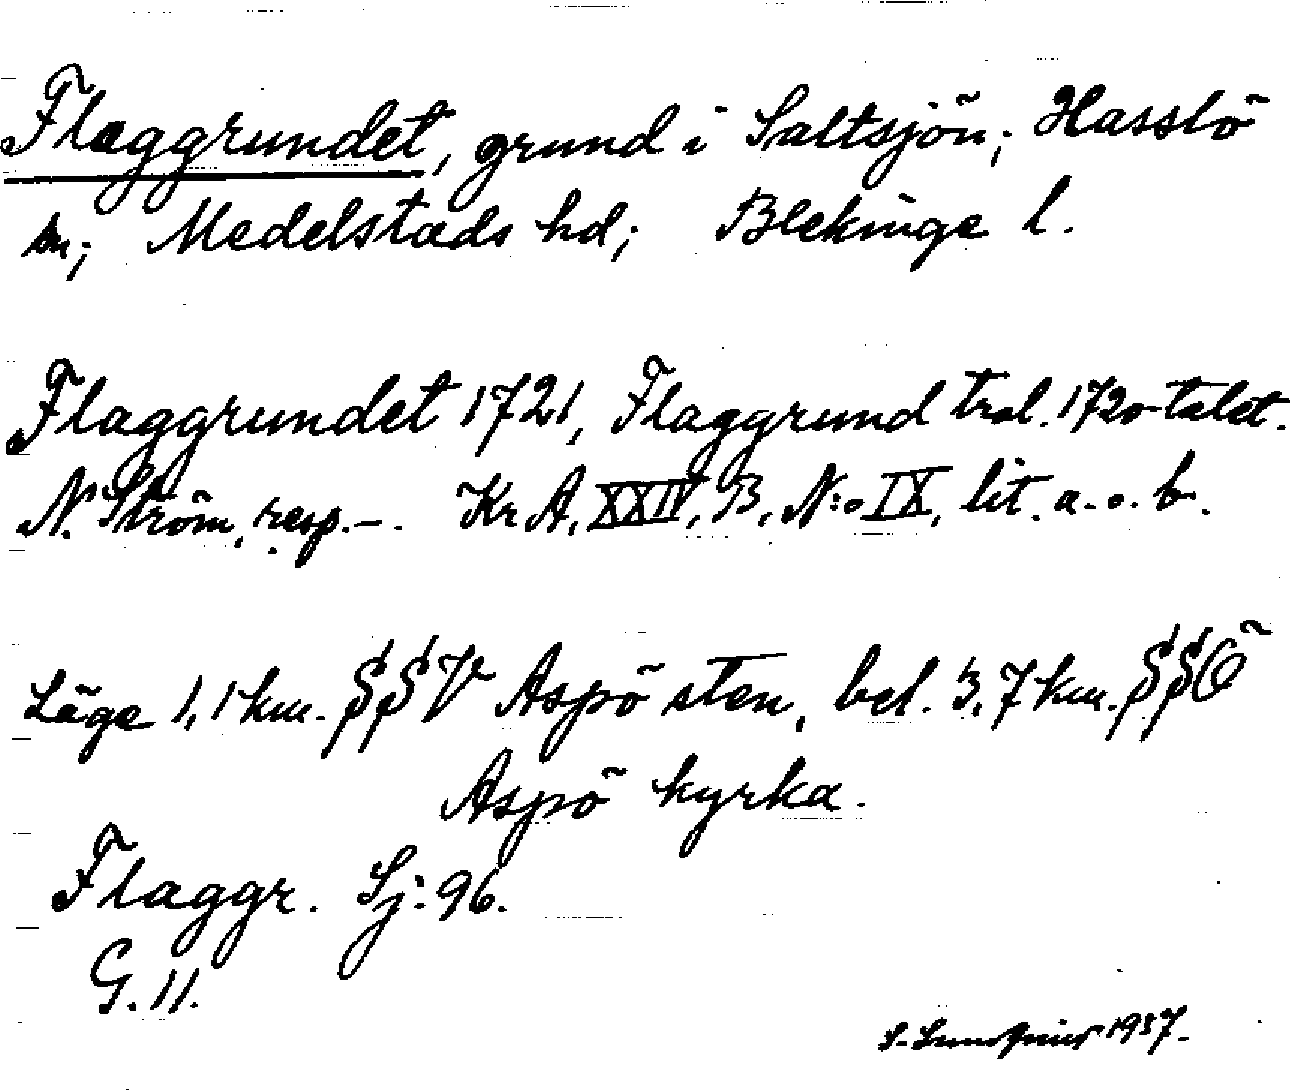 Flaggrundet, grund i Saltsjön; Hasslö
sn; Medelstads hd; Blekinge l.
Flaggrundet 1721, Flaggrund trol. 1720-talet.
N. Ström, resp. –. Kr A, XXIV, B, N:o IX, lit. a. o. b.
Läge 1,1 km. SSV Aspö sten, bel. 3,7 km. SSÖ
Aspö kyrka.
Flaggr. Sj: 96.
G. 11.
S. 1937.